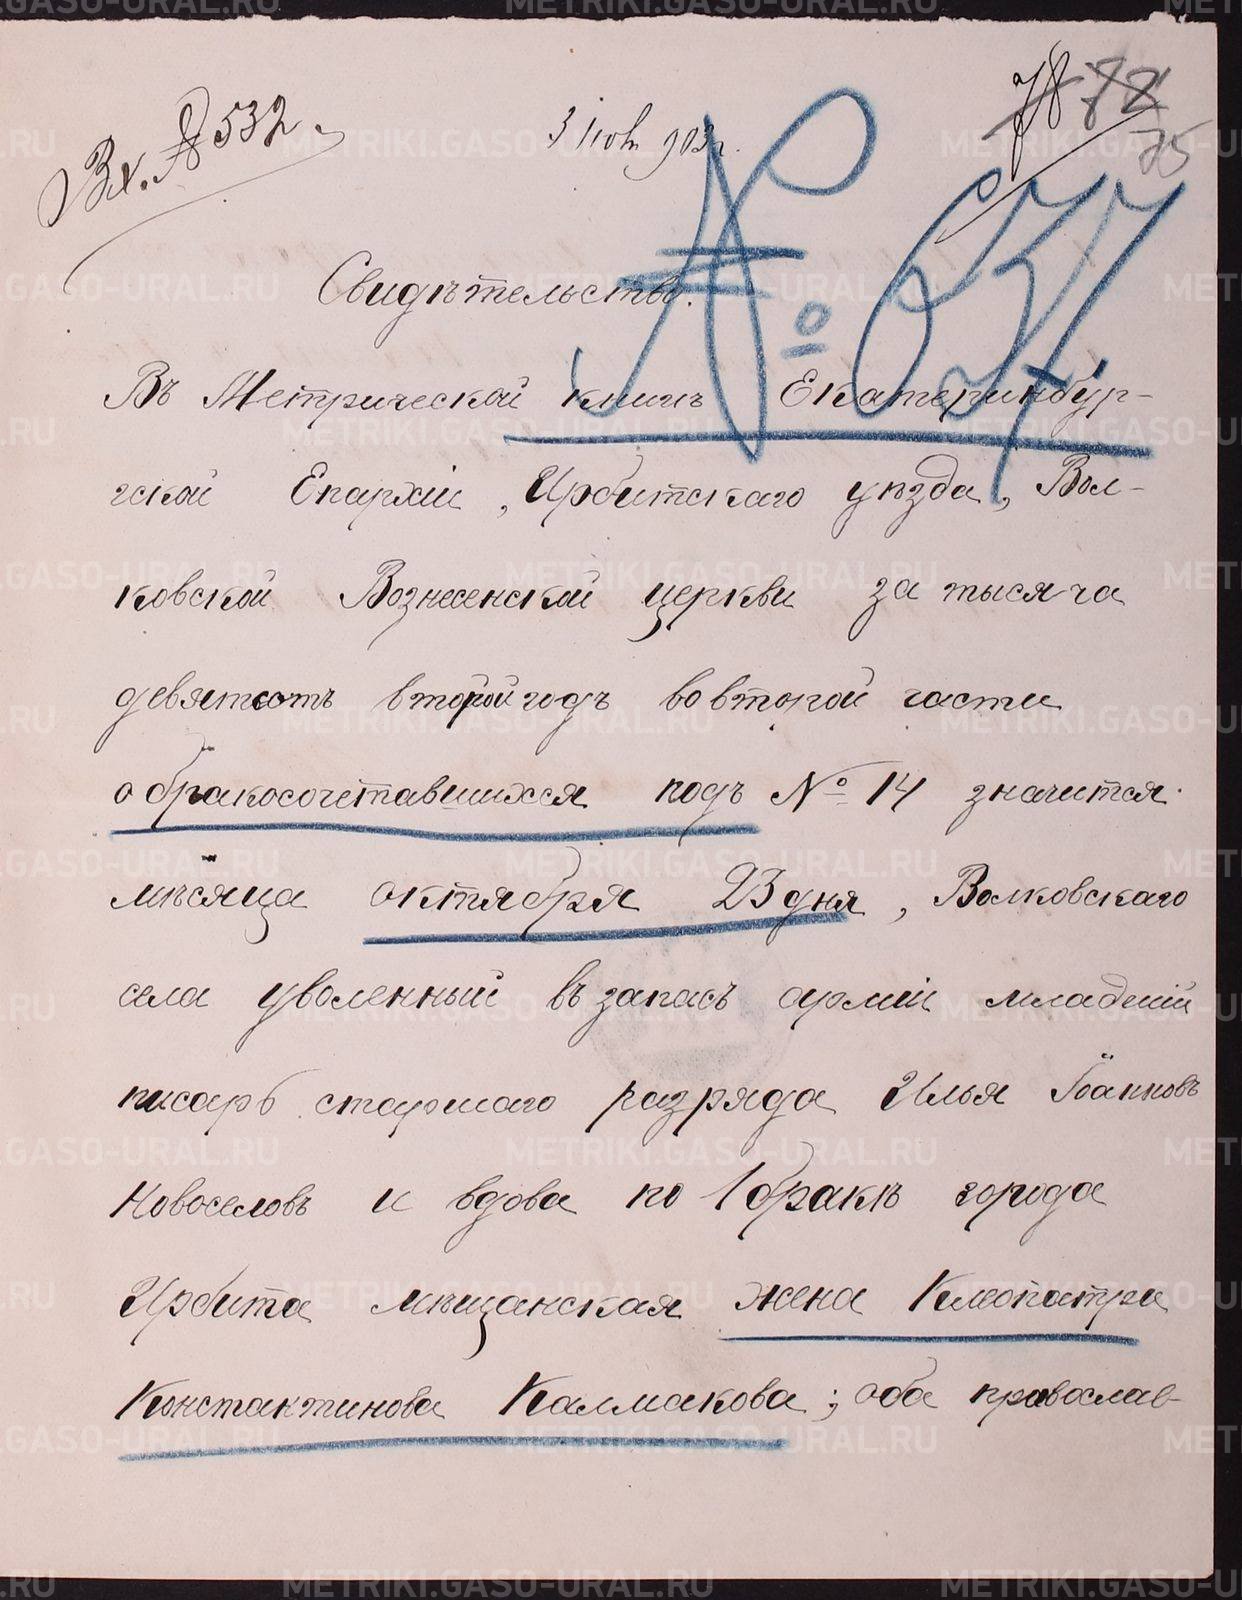 Вх. № 532
3 Іюн 903 г.
78 72
75
№ 637
Свидѣтельство.
Въ Метрической книгѣ Екатеринбур-
гской Епархіи, Ирбитскаго уѣзда, Вол-
ковской Вознесенской церкви за тысяча
девятьсотъ второй годъ во второй части
о бракосочетавшихся подъ № 14 значится:
мѣсяца октября 23 дня, Волковскаго
села уволенный въ запасъ арміи младшій
писарь старшаго разряда Илья Іоанновъ
Новоселовъ и вдова по 1 бракѣ города
Ирбита мѣщанская жена Клеопатра
Константинова Калмакова; оба православ-
METRIKI.GASO-URAL.RU